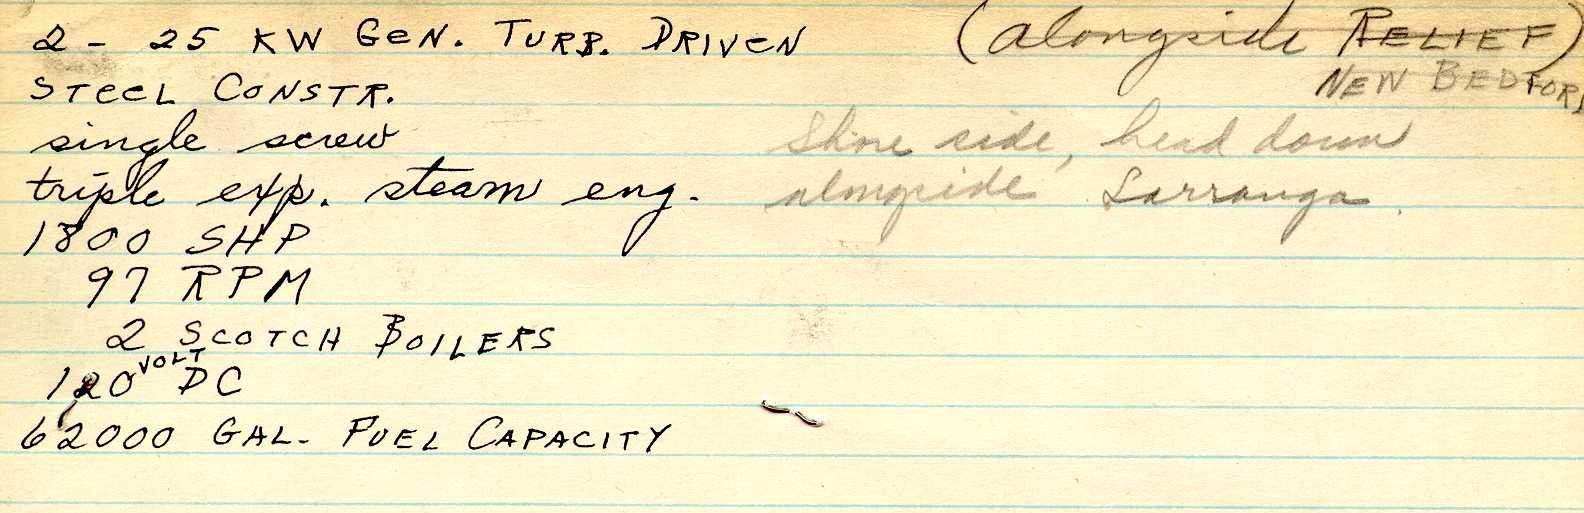 2 - 25 KW GEN. TURB. DRIVEN
(alongside RELIEF)
NEW BEDFORD
STEEL CONSTR.
single screw
Shore side, head down
triple exp. steam eng.
alongside Larranga.
1800 SHP
97 RPM
2 SCOTCH BOILERS
120 VOLT DC
62000 GAL. FUEL CAPACITY